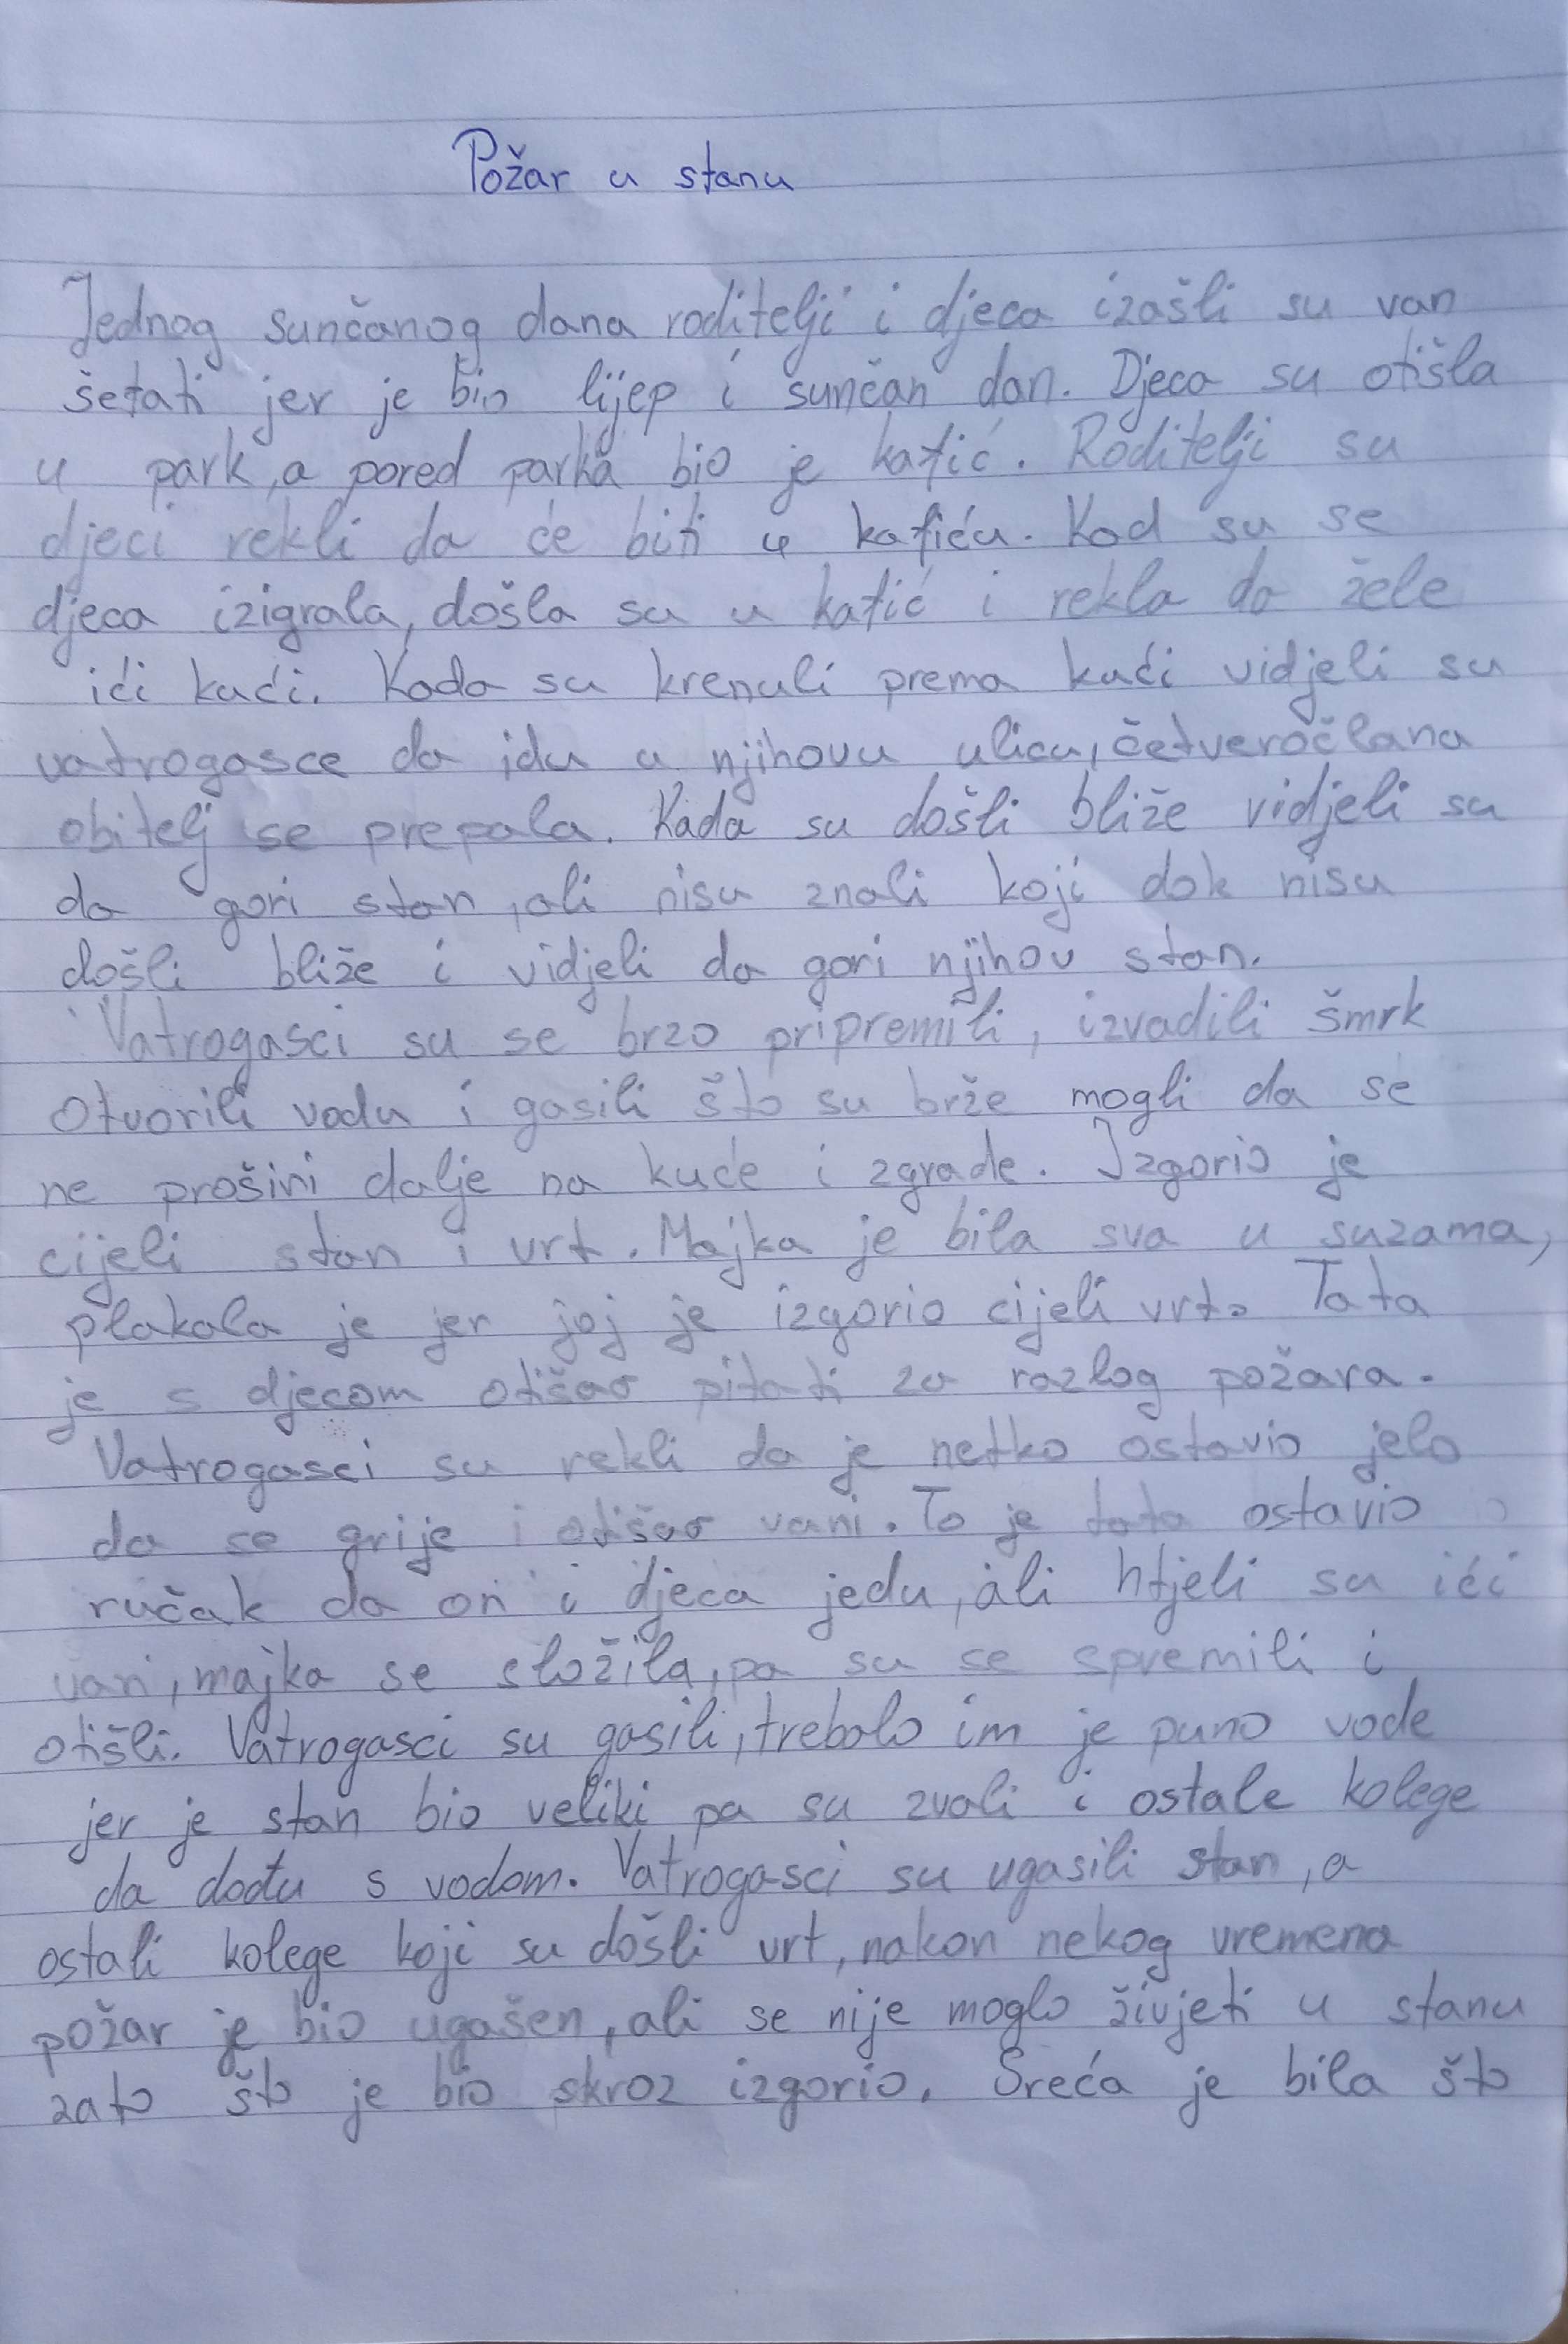 Požar u stanu
Jednog sunčanog dana roditelji i djeca izašli su van
šetati jer je bio lijep i sunčan dan. Djeca su otišla
u park, a pored parka bio je kafić. Roditelji su
djeci rekli da će biti u kafiću. Kad su se
djeca izigrala, došla su u kafić i rekla da žele
ići kući. Kada su krenuli prema kući vidjeli su
vatrogasce da idu u njihovu ulicu, četveročlana
obitelj se prepala. Kada su došli bliže vidjeli su
da gori stan, ali nisu znali koji dok nisu
došli bliže i vidjeli da gori njihov stan.
Vatrogasci su se brzo pripremili, izvadili šmrk
otvorili vodu i gasili što su brže mogli da se
ne proširi dalje na kuće i zgrade. Izgorio je
cijeli stan i vrt. Majka je bila sva u suzama,
plakala je jer joj je izgorio cijeli vrt. Tata
je s djecom otišao pitati za razlog požara.
Vatrogasci su rekli da je netko ostavio jelo
da se grije i otišao vani. To je tata ostavio
ručak da on i djeca jedu, ali htjeli su ići
vani, majka se složila, pa su se spremili i
otišli. Vatrogasci su gasili, trebalo im je puno vode
jer je stan bio veliki pa su zvali i ostale kolege
da dođu s vodom. Vatrogasci su ugasili stan, a
ostali kolege koji su došli vrt, nakon nekog vremena
požar je bio ugašen, ali se nije moglo živjeti u stanu
zato što je bio skroz izgorio. Sreća je bila što